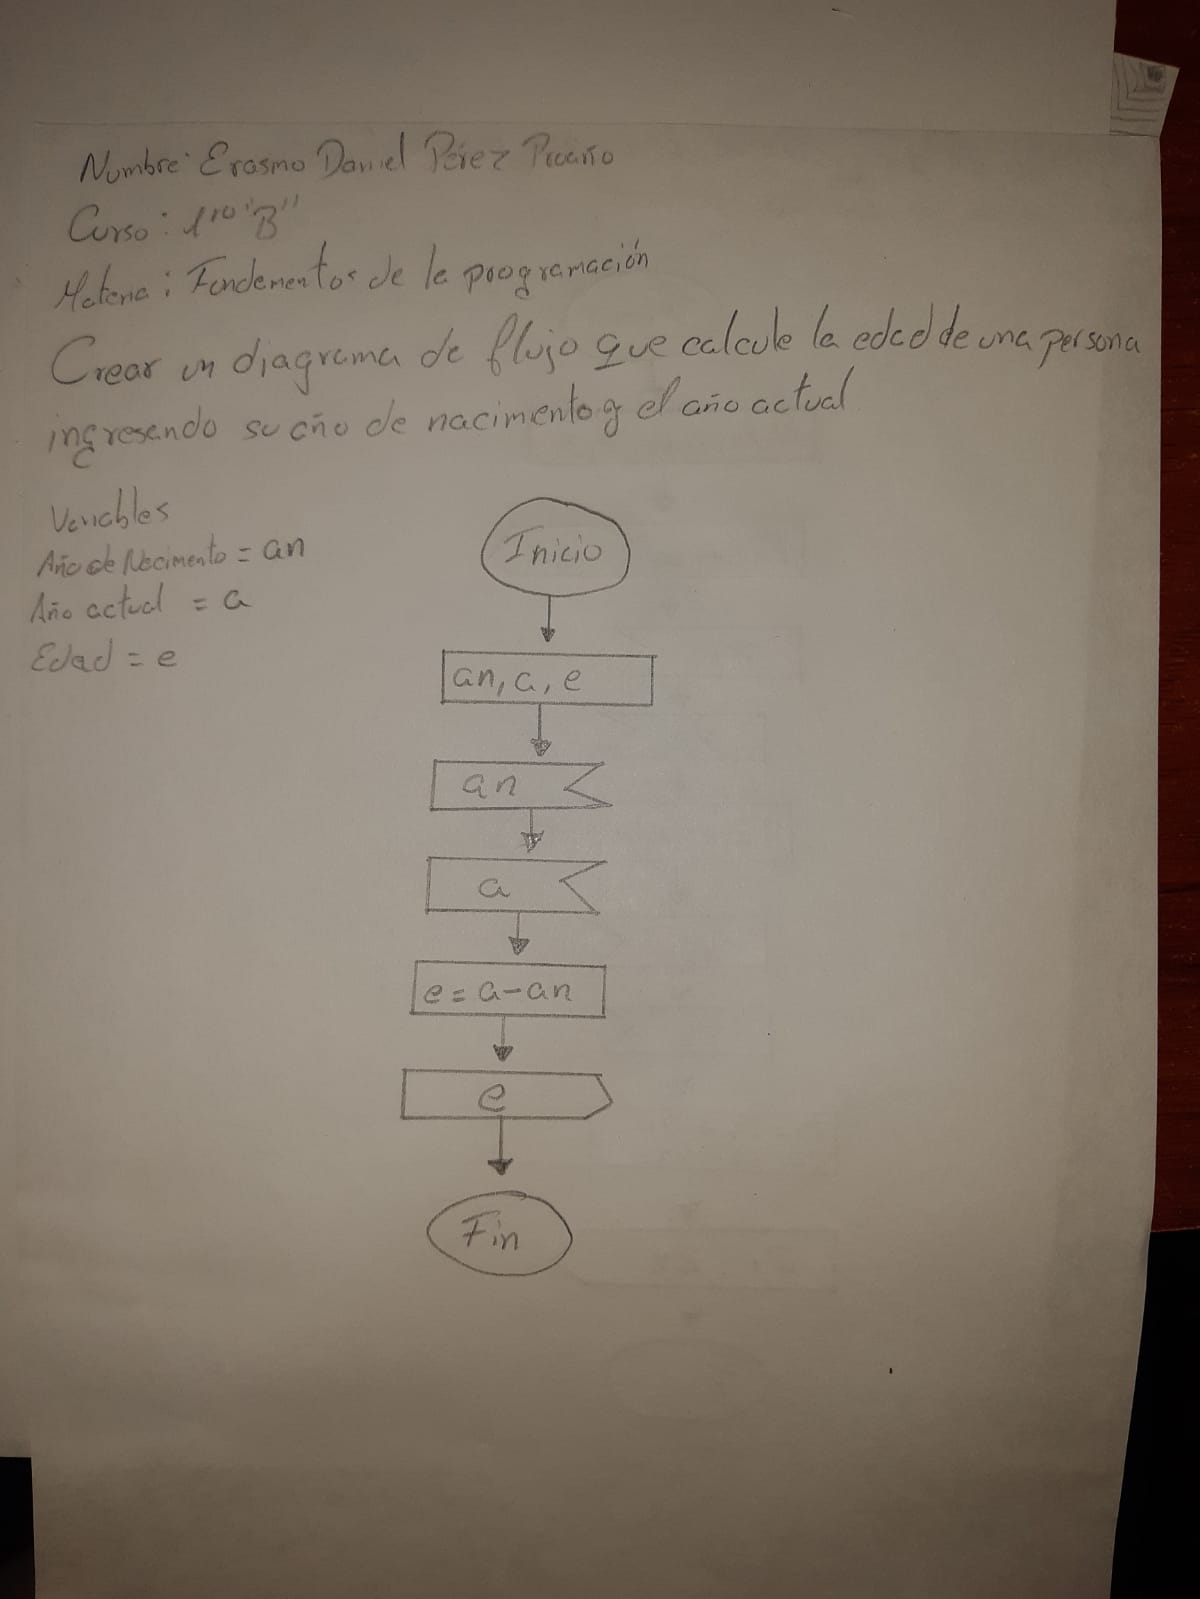 Nombre: Erasmo Daniel Pérez
Curso: 1ro "B"
Materia: Fundementos de la programación
Crear un diagrama de flujo que calcule la edad de una persona
ingresando su año de nacimiento y el año actual
Variables
Año de Nacimento = an
Año actual = a
Edad = e
Inicio
an, a, e
an
a
e = a - an
e
Fin